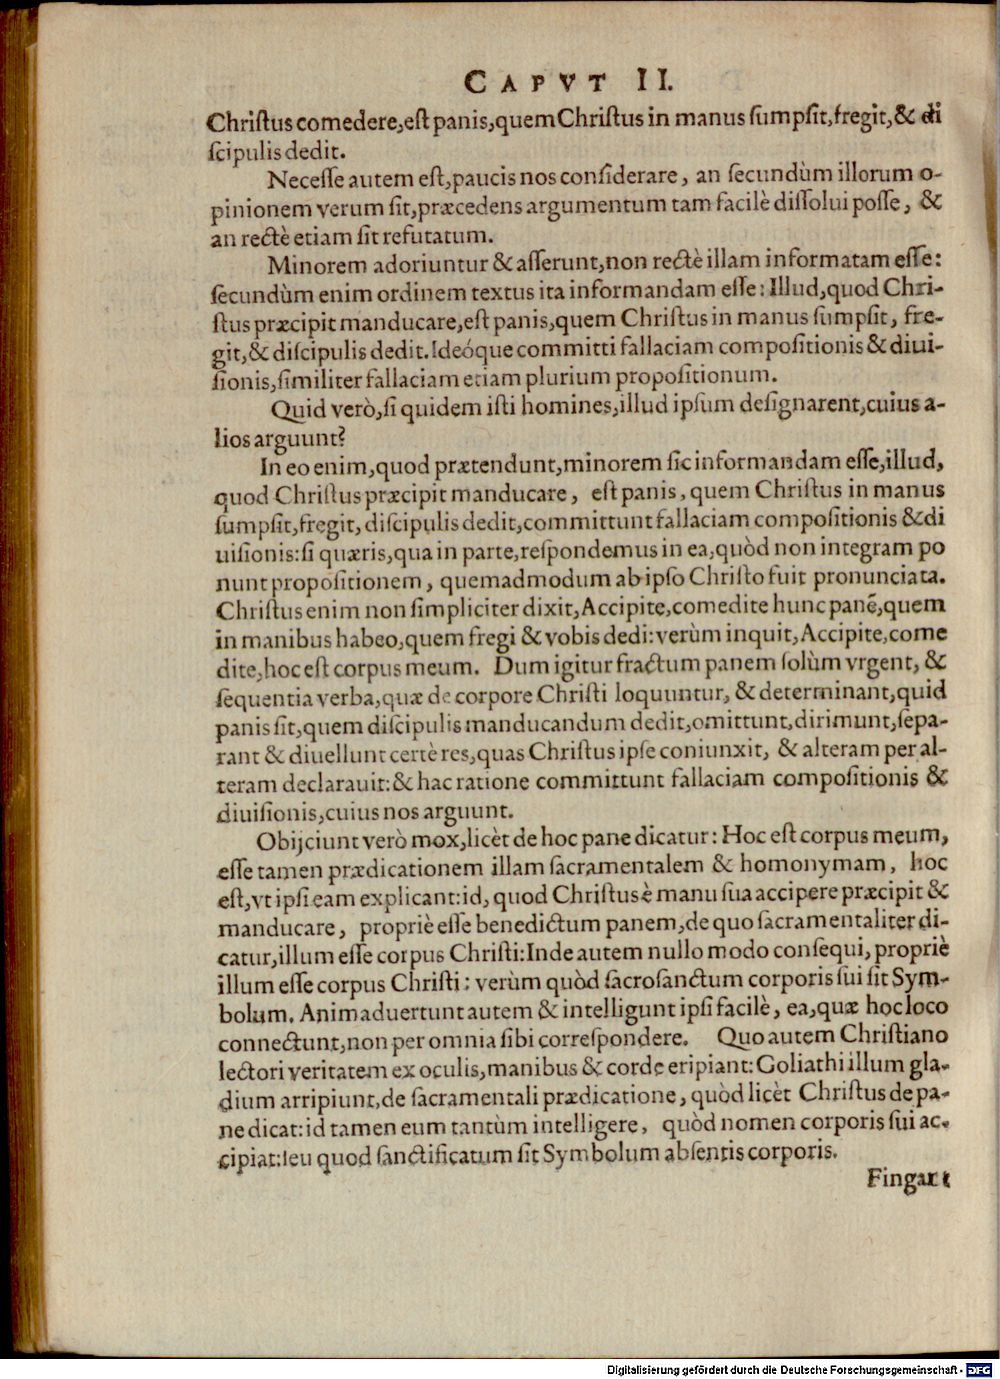 CAPVT II.
Chriſtus comedere, eſt panis, quem Chriſtus in manus ſumpſit, fregit, & di
ſcipulis dedit.
Neceſſe autem eſt, paucis nos conſiderare, an ſecundùm illorum o-
pinionem verum ſit, præcedens argumentum tam facilè diſſolui poſſe, &
an rectè etiam ſit refutatum.
Minorem adoriuntur & aſſerunt, non rectè illam informatam eſſe:
ſecundùm enim ordinem textus ita informandam eſſe: Illud, quod Chri-
ſtus præcipit manducare, eſt panis, quem Chriſtus in manus ſumpſit, fre-
git, & diſcipulis dedit. Ideóque committi fallaciam compoſitionis & diui-
ſionis, ſimiliter fallaciam etiam plurium propoſitionum.
Quid verò, ſi quidem iſti homines, illud ipſum deſignarent, cuius a-
lios arguunt?
In eo enim, quod prætendunt, minorem ſic informandam eſſe, illud,
quod Chriſtus præcipit manducare, eſt panis, quem Chriſtus in manus
ſumpſit, fregit, diſcipulis dedit, committunt fallaciam compoſitionis & di
uiſionis: ſi quæris, qua in parte, reſpondemus in ea, quòd non integram po
nunt propoſitionem, quemadmodum ab ipſo Chriſto fuit pronunciata.
Chriſtus enim non ſimpliciter dixit, Accipite, comedite hunc panē, quem
in manibus habeo, quem fregi & vobis dedi: verùm inquit, Accipite, come
dite, hoc eſt corpus meum. Dum igitur fractum panem ſolùm vrgent, &
ſequentia verba, quæ de corpore Chriſti loquuntur, & determinant, quid
panis ſit, quem diſcipulis manducandum dedit, omittunt, dirimunt, ſepa-
rant & diuellunt certè res, quas Chriſtus ipſe coniunxit, & alteram per al-
teram declarauit: & hac ratione committunt fallaciam compoſitionis &
diuiſionis, cuius nos arguunt.
Obijciunt verò mox, licèt de hoc pane dicatur: Hoc eſt corpus meum,
eſſe tamen prædicationem illam ſacramentalem & homonymam, hoc
eſt, vt ipſi eam explicant: id, quod Chriſtus è manu ſua accipere præcipit &
manducare, propriè eſſe benedictum panem, de quo ſacramentaliter di-
catur, illum eſſe corpus Chriſti: Inde autem nullo modo conſequi, propriè
illum eſſe corpus Chriſti: verùm quòd ſacroſanctum corporis ſui ſit Sym-
bolum. Animaduertunt autem & intelligunt ipſi facilè, ea, quæ hoc loco
connectunt, non per omnia ſibi correſpondere. Quo autem Chriſtiano
lectori veritatem ex oculis, manibus & corde eripiant: Goliathi illum gla-
dium arripiunt, de ſacramentali prædicatione, quòd licèt Chriſtus de pa-
ne dicat: id tamen eum tantùm intelligere, quòd nomen corporis ſui ac-
cipiat: ſeu quod ſanctificatum ſit Symbolum abſentis corporis.
Fingat
Digitalisierung gefördert durch die Deutsche Forschungsgemeinschaft - DFG